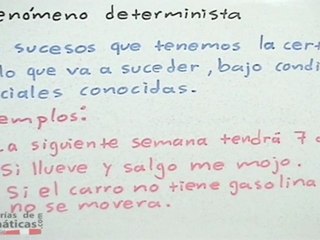 enómeno determinista
sucesos que tenemos la cert
lo que va a suceder, bajo condi
ciales conocidas.
emplos:
La siguiente semana tendrá 7 d
Si llueve y salgo me mojo.
Si el carro no tiene gasolina
no se movera.
rías de
máticas